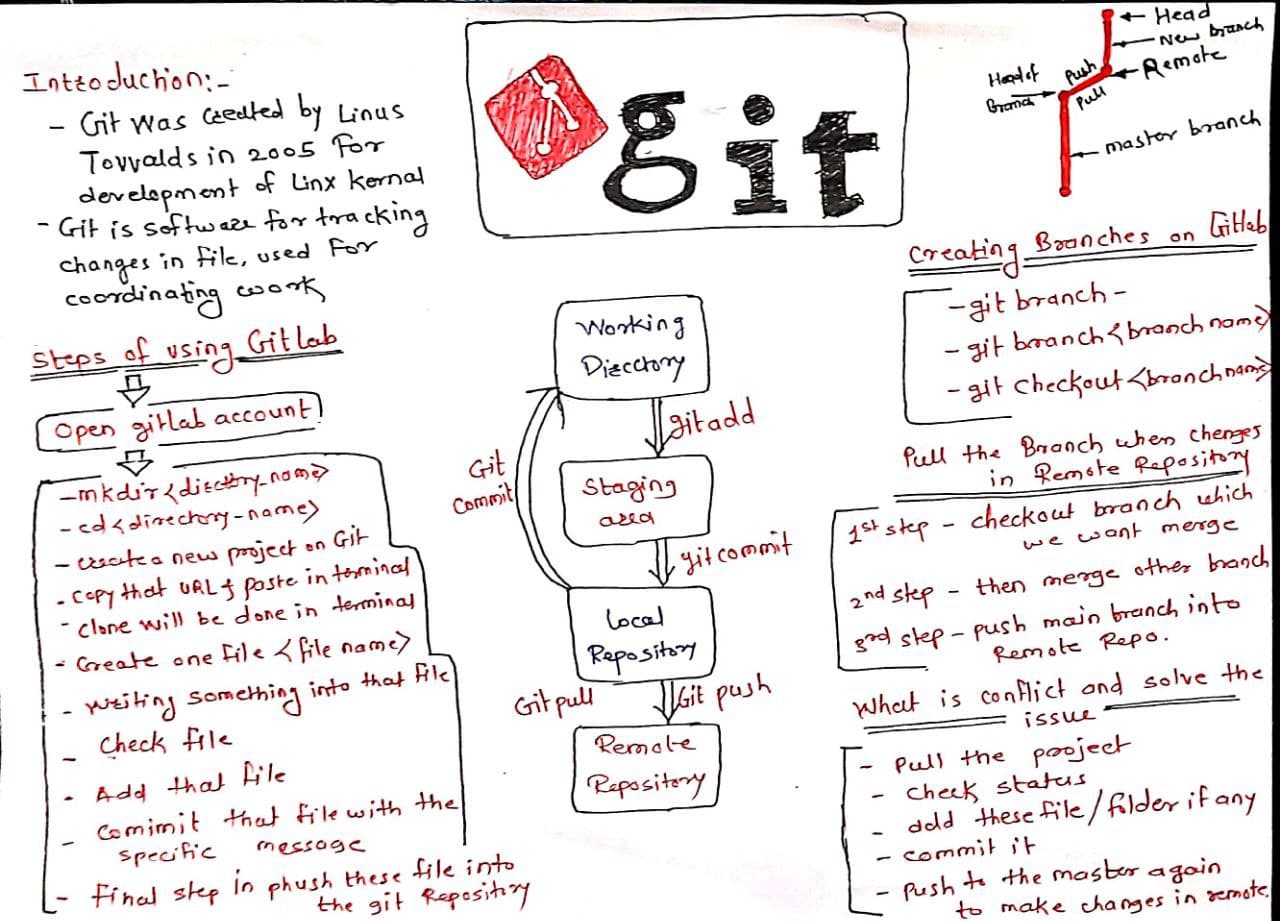 Introduction:-
- Git was created by Linus
Torvalds in 2005 for
development of Linx kernal
- Git is software for tracking
changes in file, used for
coordinating work
Steps of using GitLab
Open gitlab account
- mkdir <directory_name>
- cd <directory-name>
- create a new project on Git
- copy that URL & paste in terminal
- clone will be done in terminal
- Create one file <file name>
- writing something into that file
- Check file
- Add that file
- Comimit that file with the
specific message
- final step in phush these file into
the git Repository
git
Working
Directory
git add
Staging
area
git commit
Git
commit
Local
Repository
Git pull
Git push
Remote
Repository
Head
New branch
Remote
Head of
Branch
Push
Pull
master branch
Creating Branches on Gitlab
- git branch -
- git branch <branch name>
- git checkout <branch name>
Pull the Branch when chenges
in Remote Repository
1st step - checkout branch which
we want merge
2nd step - then merge other branch
3rd step - push main branch into
Remote Repo.
What is conflict and solve the
issue
- Pull the project
- check status
- add these file/folder if any
- commit it
- Push to the master again
to make changes in remote.